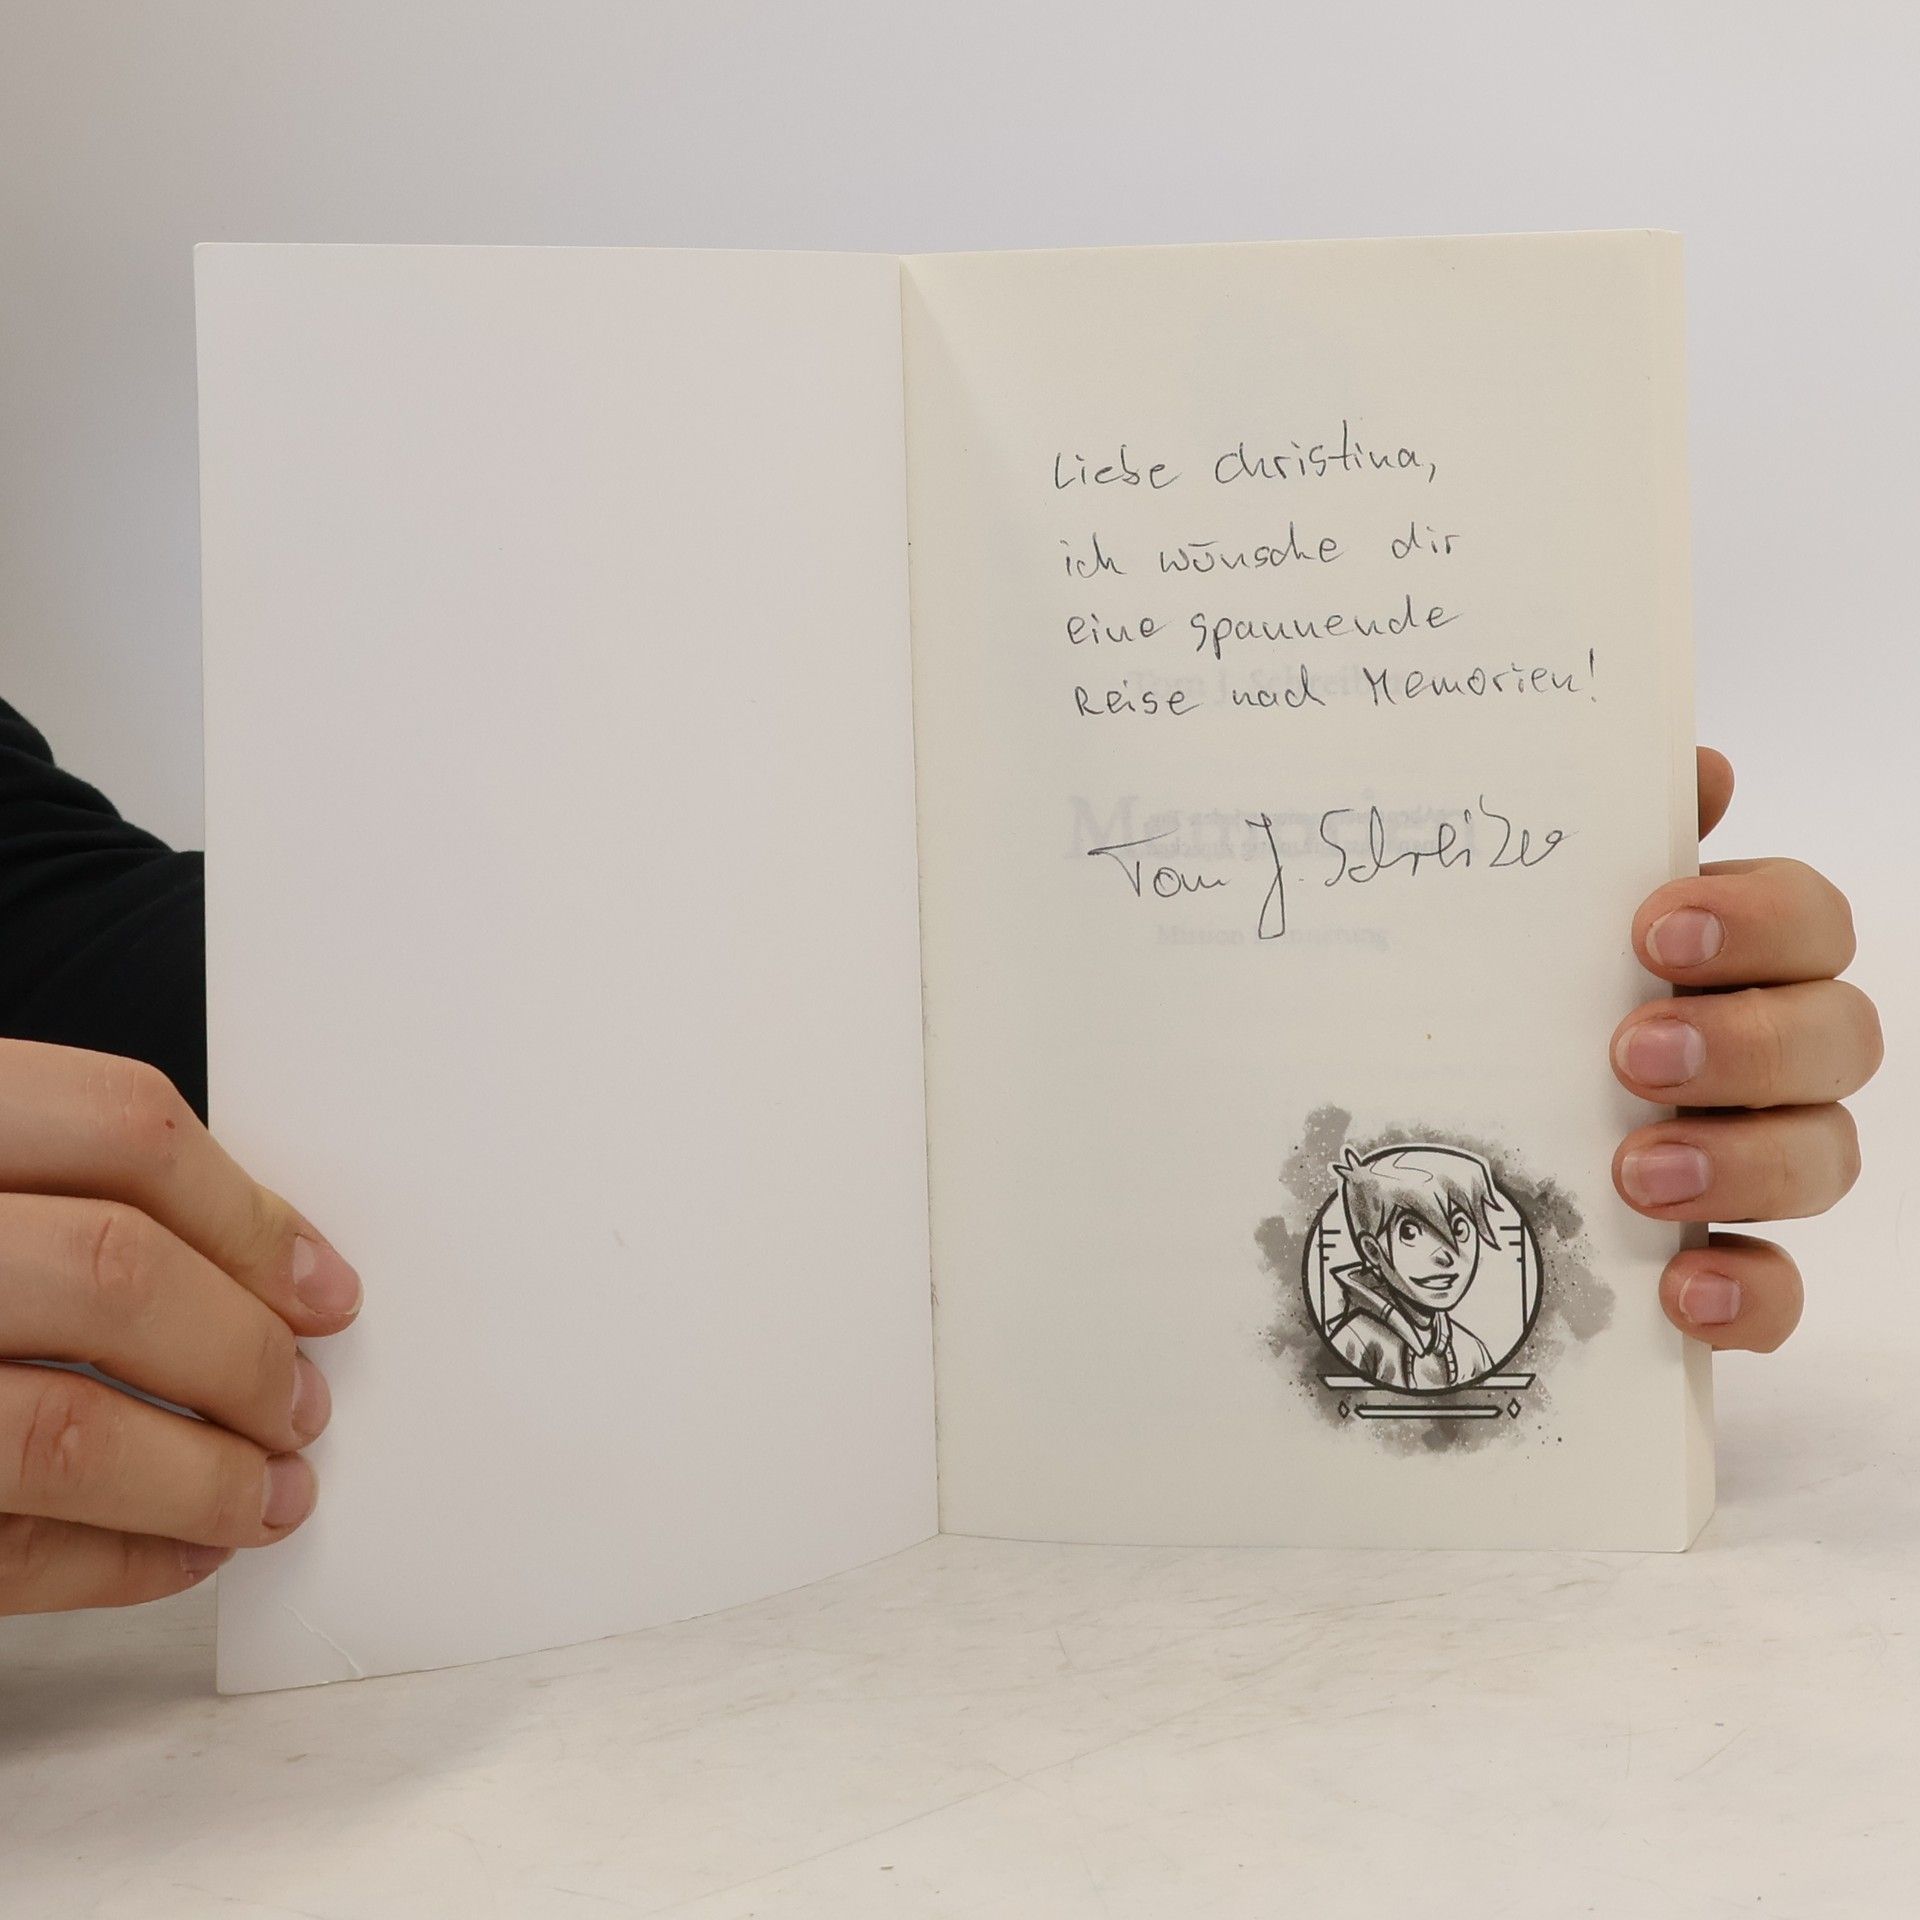 Liebe Christina,
ich wünsche dir
eine spannende
Reise nach Memorien!
Tom J. Schreiber
Tom J. Schreiber
Memorien
Mission Erinnerung